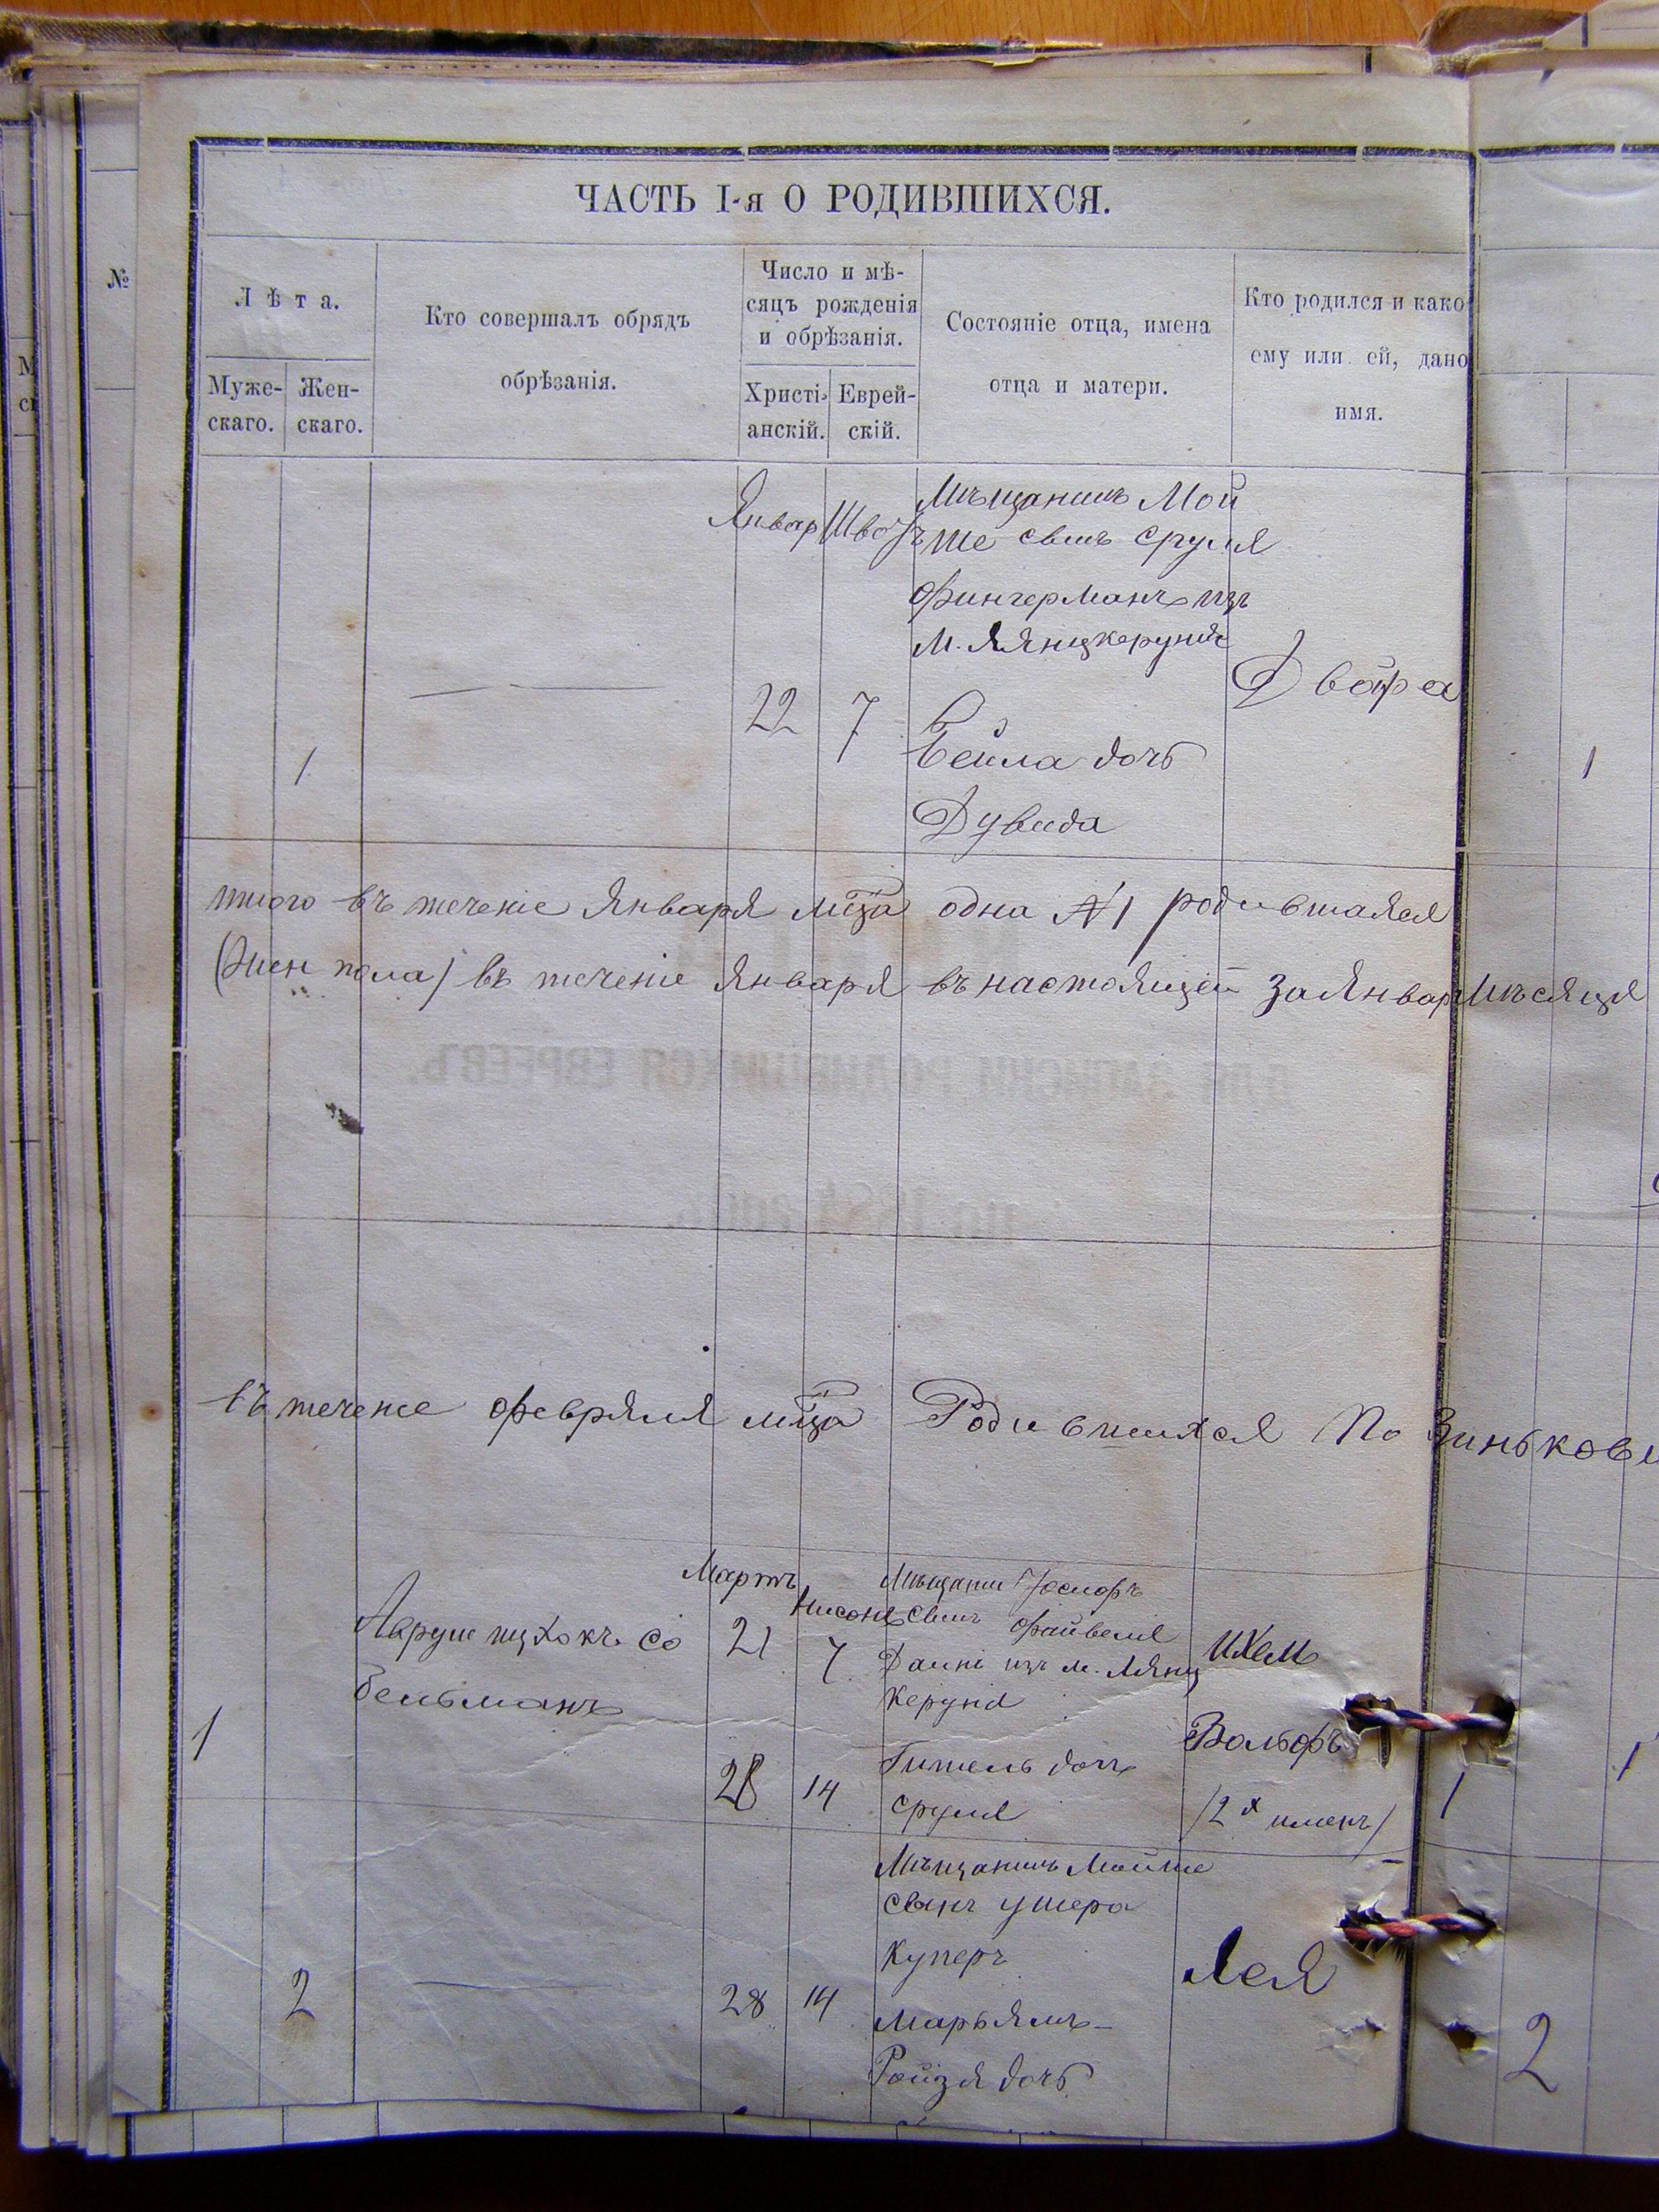 ЧАСТЬ I-я О РОДИВШИХСЯ.
№
Лѣта.
Муже-
скаго.
Жен-
скаго.
Кто совершалъ обрядъ
обрѣзанія.
Число и мѣ-
сяцъ рожденія
и обрѣзанія.
Христі-
анскій.
Еврей-
скій.
Состояніе отца, имена
отца и матери.
Кто родился и како
ему или ей, дано
имя.
1
Январ
22
Швотъ
7
Мѣщанинъ Мой
ше сынъ Сруля
Фингерманъ изъ
м. Лянцкеруния
Бейла дочь
Дувида
Двойра
1
итого въ теченіе Января мца одна №1 родившаяся
(жен пола) въ теченіе Января въ настоящей за Январ мѣсяця
ДЛЯ ЗАПИСКИ РОДИВШИХСЯ ЕВРЕЕВЪ.
на 1884 годъ.
въ теченіе Февряля мца Родившихся по Зиньков
1
со
бельманъ
Мартъ
21
28
Нисонъ
7
14
Мѣщани Іосифъ
сынъ Файвеля
изъ м. Лянц
керуня
Гитель дочь
Сруля
Ихем
Вольфъ
(2х именъ)
1
1
2
28
14
Мѣщанинъ Мойше
сынъ Ушера
Куперъ
Марьямъ-
Ройзя дочь
Лея
2